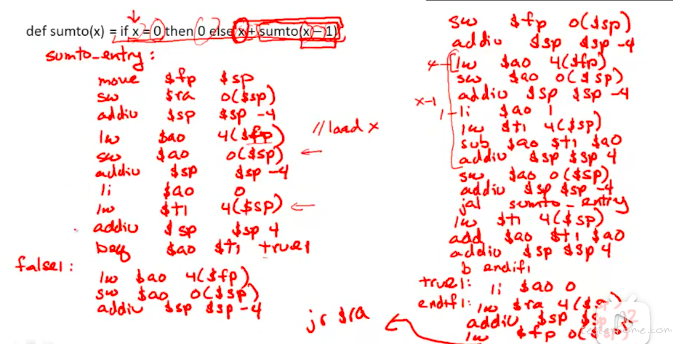 def sumto(x) = if x = 0 then 0 else x + sumto(x – 1)
sumto_entry:
move $fp $sp
sw $ra 0($sp)
addiu $sp $sp -4
lw $a0 4($fp) //load x
sw $a0 0($sp)
addiu $sp $sp -4
li $a0 0
lw $t1 4($sp)
addiu $sp $sp 4
beq $a0 $t1 true1
false1:
lw $a0 4($fp)
sw $a0 0($sp)
addiu $sp $sp -4
jr $ra
sw $fp 0($sp)
addiu $sp $sp -4
lw $a0 4($fp)
sw $a0 0($sp)
addiu $sp $sp -4
x-1
li $a0 1
lw $t1 4($sp)
sub $a0 $t1 $a0
addiu $sp $sp 4
sw $a0 0($sp)
addiu $sp $sp -4
jal sumto_entry
lw $t1 4($sp)
add $a0 $t1 $a0
addiu $sp $sp 4
b endif1
true1: li $a0 0
endif1: lw $ra 4($
addiu $sp
lw $fp 0($